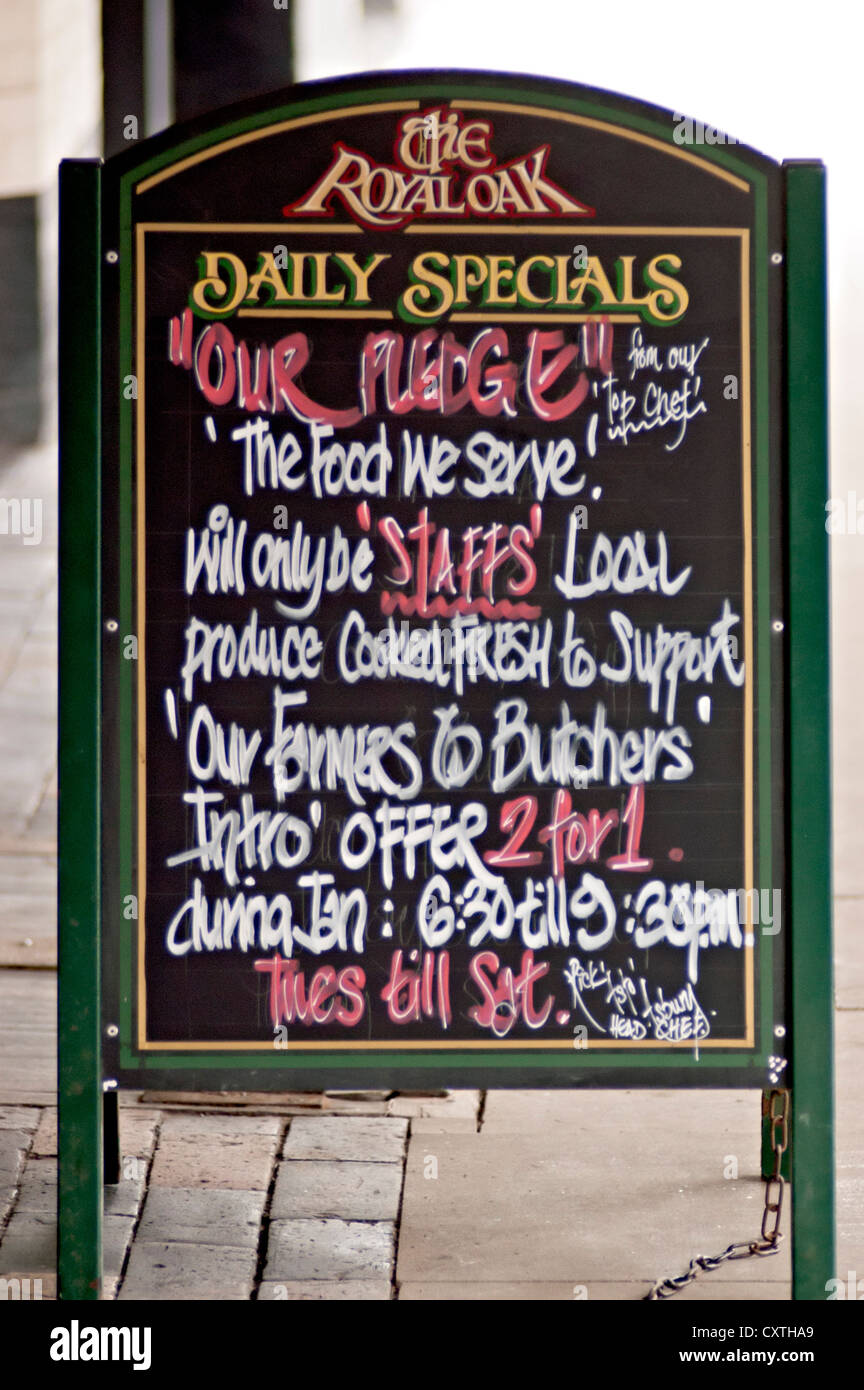 The
ROYAL OAK
DAILY SPECIALS
"OUR PLEDGE" from our
'Top Chef'
'The Food We serve'!
Will only be 'STAFFS' Local
produce Cooked FRESH to Support
'Our Farmers to Butchers'
Intro' OFFER 2 for 1.
during Jan : 6:30 till 9:30pm.
Tues till Sat.
HEAD CHEF
alamy
Image ID: CXTHA9
www.alamy.com